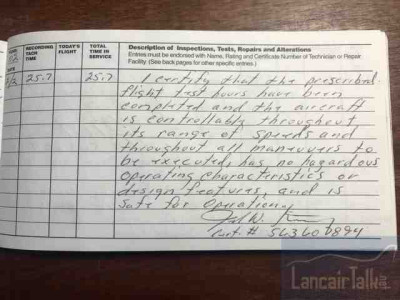 RECORDING TACH TIME
TODAY'S FLIGHT
TOTAL TIME IN SERVICE
Description of Inspections, Tests, Repairs and Alterations
Entries must be endorsed with Name, Rating and Certificate Number of Technician or Repair
Facility. (See back pages for other specific entries.)
25.7 25.7 I certify that the prescribed
flight test hours have been
completed and the aircraft
is controllable throughout
its range of speeds and
throughout all maneuvers to
be executed, has no hazardous
operating characteristics or
design features, and is
safe for operation.
Cert. #
LancairTalk